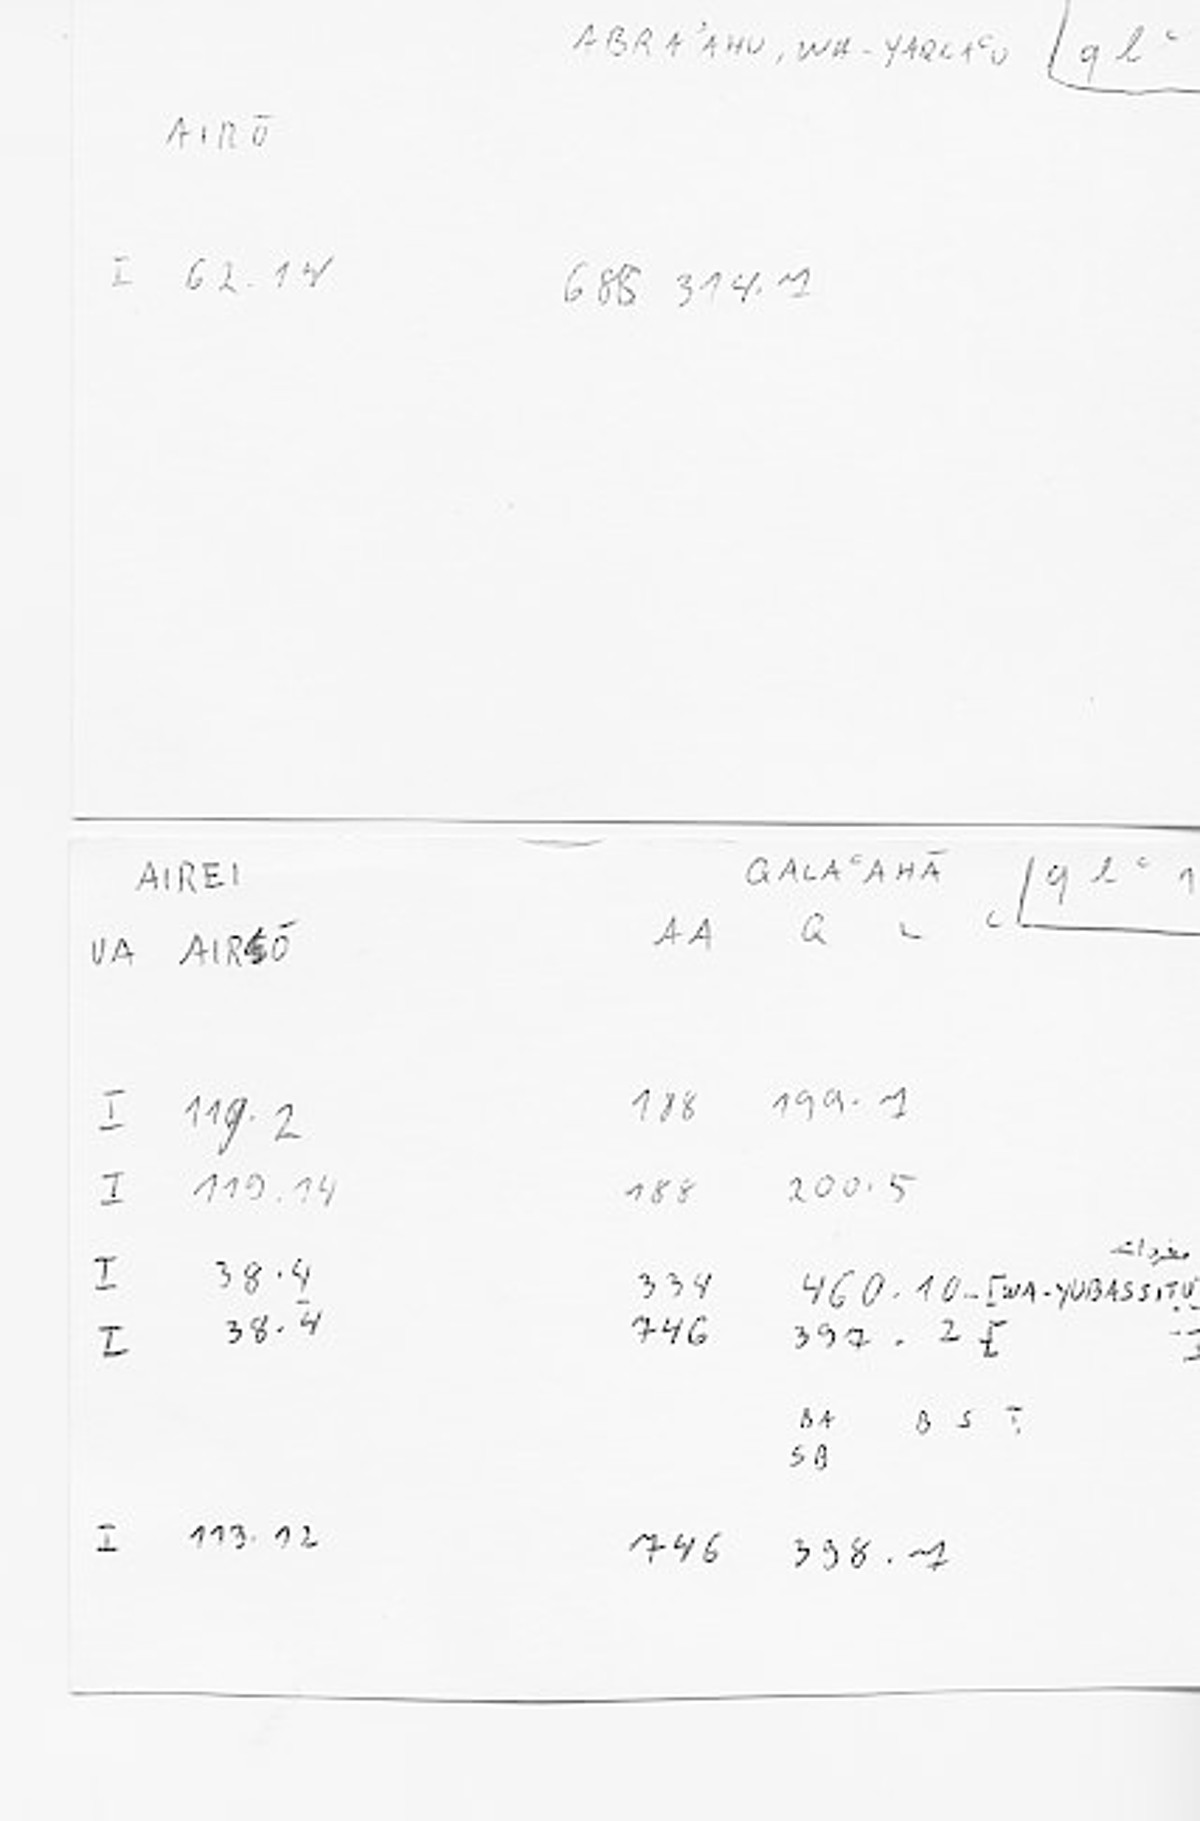 ABRAʾAHU, WA-YAQLAʿU q l ʿ
AIRŌ
I 62.14 688 314.1
AIREI QALAʿAHĀ q l ʿ 1
VA AIRŌ AA Q L ʿ
I 119.2 188 199.1
I 119.14 188 200.5
مفردات
I 38.4 334 460.10-[WA-YUBASSIṬU
I 38.4 746 397.2 [
BA B S Ṭ
SB
I 113.12 746 398.1